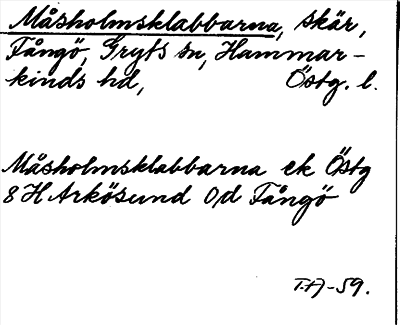 Måsholmsklabbarna, skär,
Fångö, Gryts sn, Hammar-
kinds hd, Östg. l.
Måsholmsklabbarna ek Östg
8 H Arkösund 0d Fångö
T.A-59.